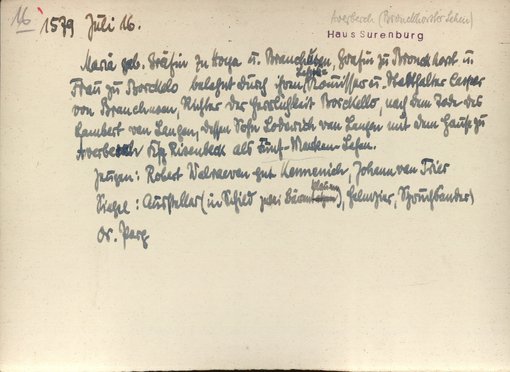 16
1579 Juli 16.
Averbeck (Bronckhorster Lehen)
Haus Surenburg
Maria geb. Gräfin zu Hoya u. Brauchusen, Gräfin zu Bronckhort u.
Frau zu Borckelo belehnt durch ihren Lehns- Komissar u. Statthalter Casper
von Brauchusen, Richter der Herrlichkeit Borckello, nach dem Tode des
Lambert van Langen, dessen Sohn Loderich van Langen mit dem Hause zu
Averbeck Ksp. Risenbeck als Fünf-Marcken-Lehen.
Zeugen: Robert Walraeven gut Johann van Trier
Siegel: Aussteller (in Schild zwei Bären), Helmzier, Spruchbänder)
Or. Perg